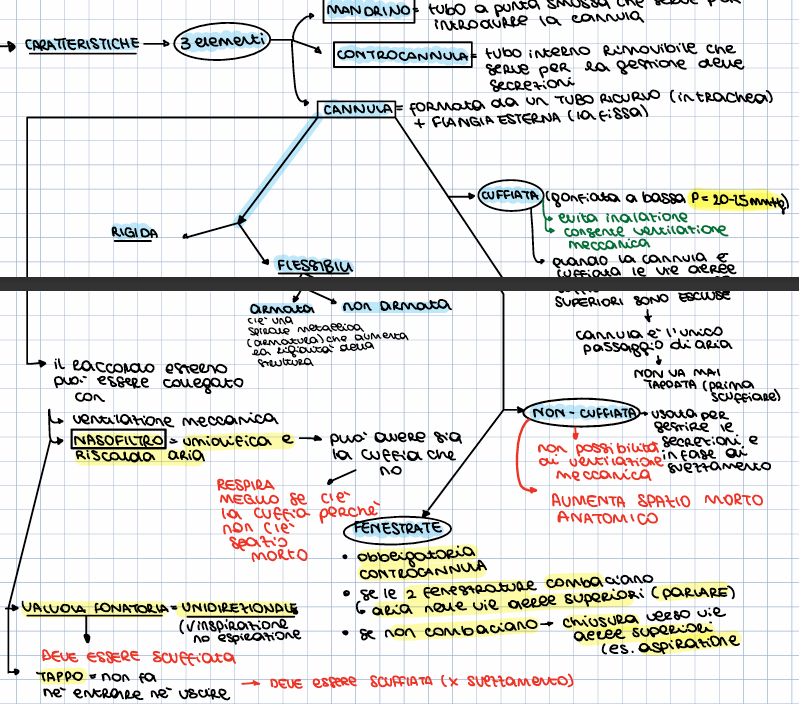 MANDRINO = tubo a punta smussa che serve per
introdurre la cannula
CARATTERISTICHE → 3 elementi
CONTROCANNULA = tubo interno rimovibile che
serve per la gestione delle
secrezioni
CANNULA = formata da un TUBO RICURVO (in trachea)
+ FLANGIA ESTERNA (la fissa)
CUFFIATA (gonfiata a bassa P = 20-25 mmHg)
→ evita inalazione
→ consente ventilazione
meccanica
RIGIDA
FLESSIBILI
→ quando la cannula è
cuffiata le vie aeree
SUPERIORI SONO ESCLUSE
ARMATA
c'è una
spirale metallica
(armatura) che aumenta
la rigidità della
struttura
NON ARMATA
cannula è l'unico
passaggio di aria
NON VA MAI
TAPPATA (prima
scuffiare)
→ il raccordo esterno
può essere collegato
con
→ ventilazione meccanica
→ NASOFILTRO = umidifica e
riscalda aria
→ può avere sia
la cuffia che
no
RESPIRA
MEGLIO SE C'è
la cuffia perché
non c'è
spazio
morto
NON-CUFFIATA → usata per
gestire le
secrezioni e
in fase di
svezzamento
non possibilità
di ventilazione
meccanica
AUMENTA SPAZIO MORTO
ANATOMICO
FENESTRATE
• obbligatoria
CONTROCANNULA
• se le 2 fenestrature combaciano
↳ aria nelle vie aeree superiori (PARLARE)
• se non combaciano → chiusura verso vie
aeree superiori
(es. aspirazione
→ VALVOLA FONATORIA = UNIDIREZIONALE
(√ inspirazione
no espirazione
DEVE ESSERE SCUFFIATA
→ TAPPO = non fa
né entrare né uscire
→ DEVE ESSERE SCUFFIATA (x svezzamento)